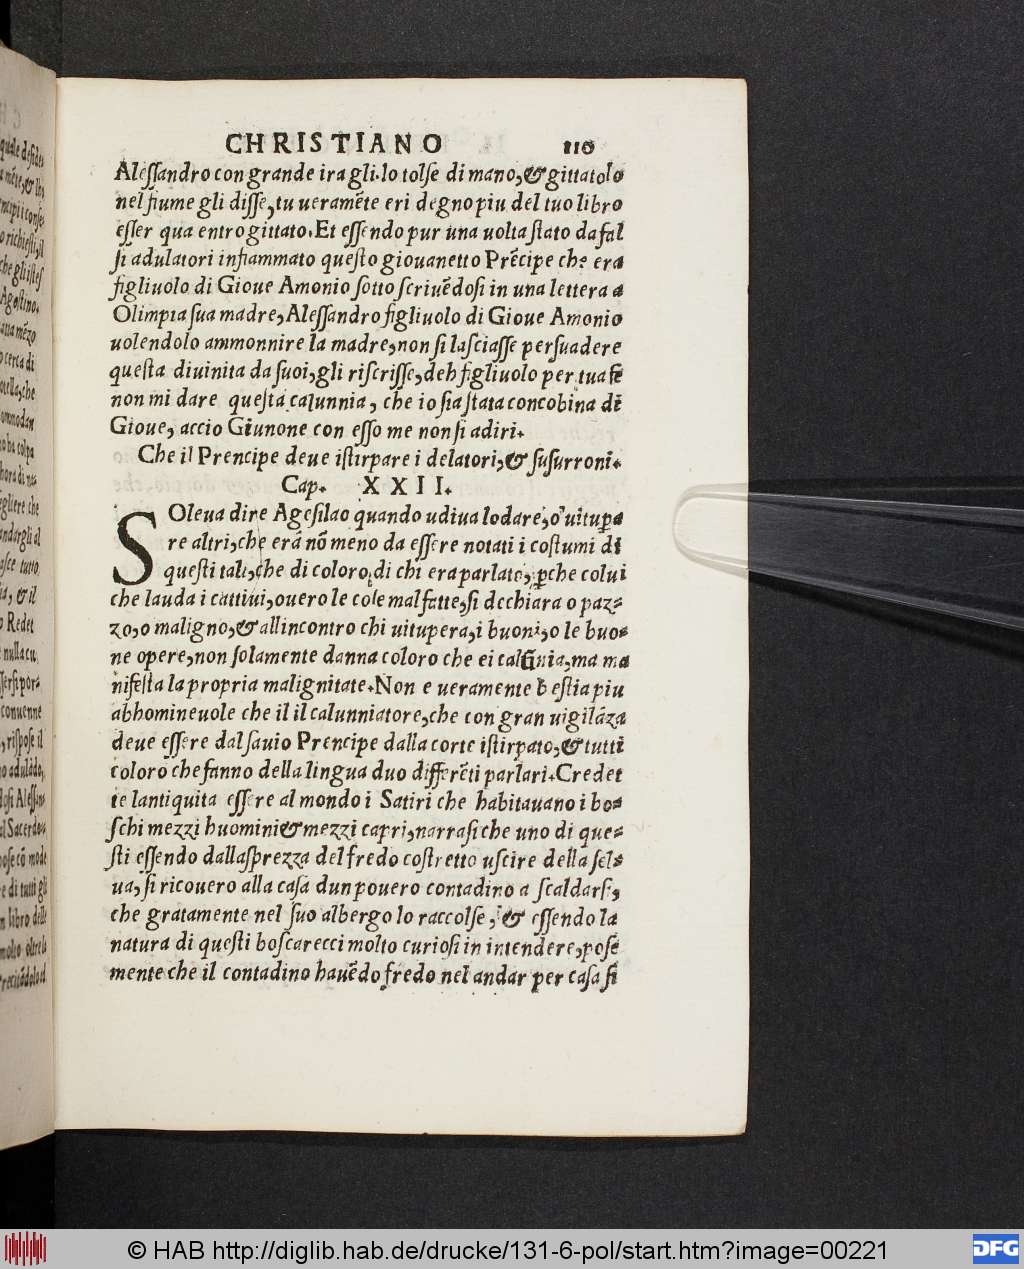 CHRISTIANO 110
Aleſſandro con grande ira gli.lo tolſe di mano,& gittatolo
nel fiume gli diſſe,tu ueramẽte eri degno piu del tuo libro
eſſer qua entro gittato.Et eſſendo pur una uolta ſtato da fal
ſi adulatori infiammato queſto giouanetto Prẽcipe che era
figliuolo di Gioue Amonio ſotto ſcriuẽdoſi in una lettera a
Olimpia ſua madre,Aleſſandro figliuolo di Gioue Amonio
uolendolo ammonnire la madre,non ſi laſciaſſe perſuadere
queſta diuinita da ſuoi,gli riſcriſſe,deh figliuolo per tua fe
non mi dare queſta calunnia, che io ſia ſtata concobina di
Gioue, accio Giunone con eſſo me non ſi adiri.
Che il Prencipe deue iſtirpare i delatori,& ſuſurroni.
Cap. XXII.
SOleua dire Ageſilao quando udiua lodare, o uitupa
re altri,che erã nõ meno da eſſere notati i coſtumi di
queſti tali,che di coloro di chi era parlato, ꝑche colui
che lauda i cattiui,ouero le coſe mal fatte,ſi dechiara o paz-
zo,o maligno,& allincontro chi uitupera,i buoni,o le buo-
ne opere,non ſolamente danna coloro che ei calũnia,ma ma
nifeſta la propria malignitate.Non e ueramente beſtia piu
abhomineuole che il il calunniatore,che con gran uigilãza
deue eſſere dal ſauio Prencipe dalla corte iſtirpato,& tutti
coloro che fanno della lingua duo differẽti parlari.Credet
te lantiquita eſſere al mondo i Satiri che habitauano i bo-
ſchi mezzi huomini & mezzi capri,narraſi che uno di que-
ſti eſſendo dallaſprezza del fredo coſtretto uſcire della ſel-
ua,ſi ricouero alla caſa dun pouero contadino a ſcaldarſi,
che gratamente nel ſuo albergo lo raccolſe, & eſſendo la
natura di queſti boſcarecci molto curioſi in intendere,poſe
mente che il contadino hauẽdo fredo nel andar per caſa ſi
© HAB http://diglib.hab.de/drucke/131-6-pol/start.htm?image=00221
DFG